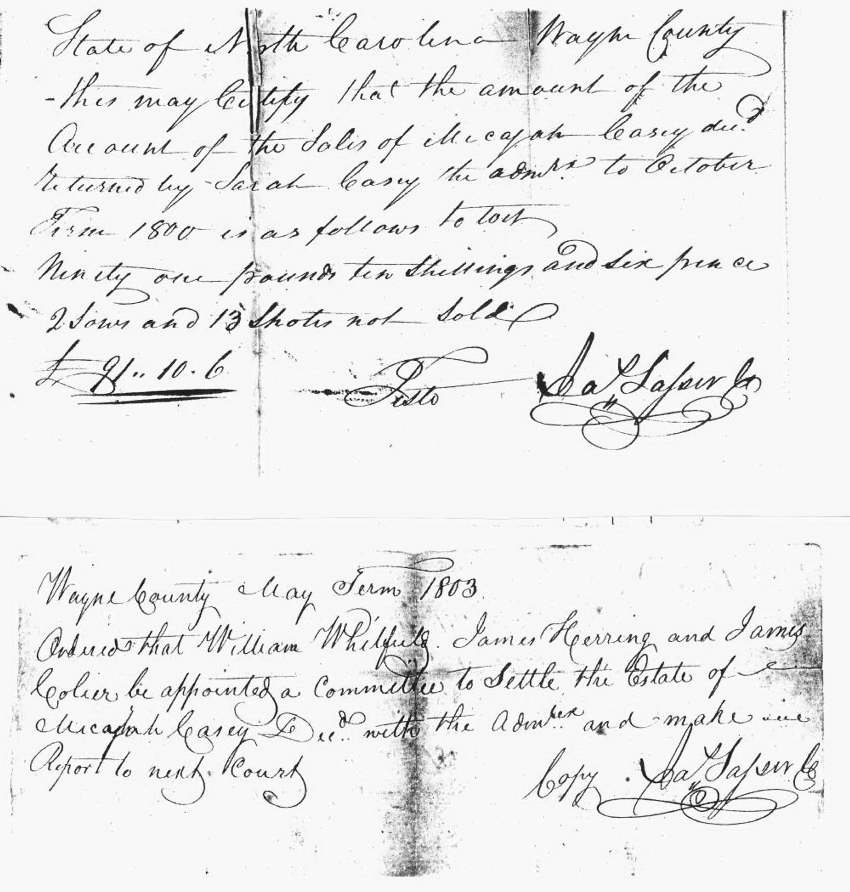 State of North Carolina Wayne County
this may Certify that the amount of the
Account of the Sales of Micajah Casey decd
returned by Sarah Casey the admrx to October
Term 1800 is as follows to wit
Ninety one pounds ten Shillings and six pence
2 Sows and 13 Shotes not Sold
£ 91.. 10. 6
Teste
Sasser Ck
Wayne County May Term 1803
Ordered that William Whitfield. James Herring and James
Colier be appointed a Committee to Settle the Estate of
Micajah Casey Decd. with the Admrx and make
Report to next Court
Copy Sasser Ck